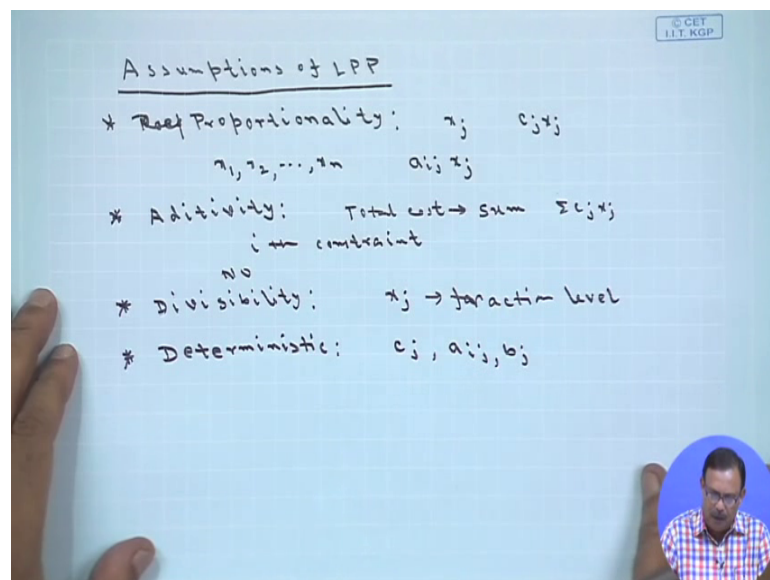 © CET
I.I.T. KGP
Assumptions of LPP
* Proportionality: xj cjxj
x1, x2, ..., xn aij xj
* Aditivity: Total cost → sum Σcjxj
i th constraint
NO
* Divisibility: xj → faraction level
* Deterministic: cj, aij, bj